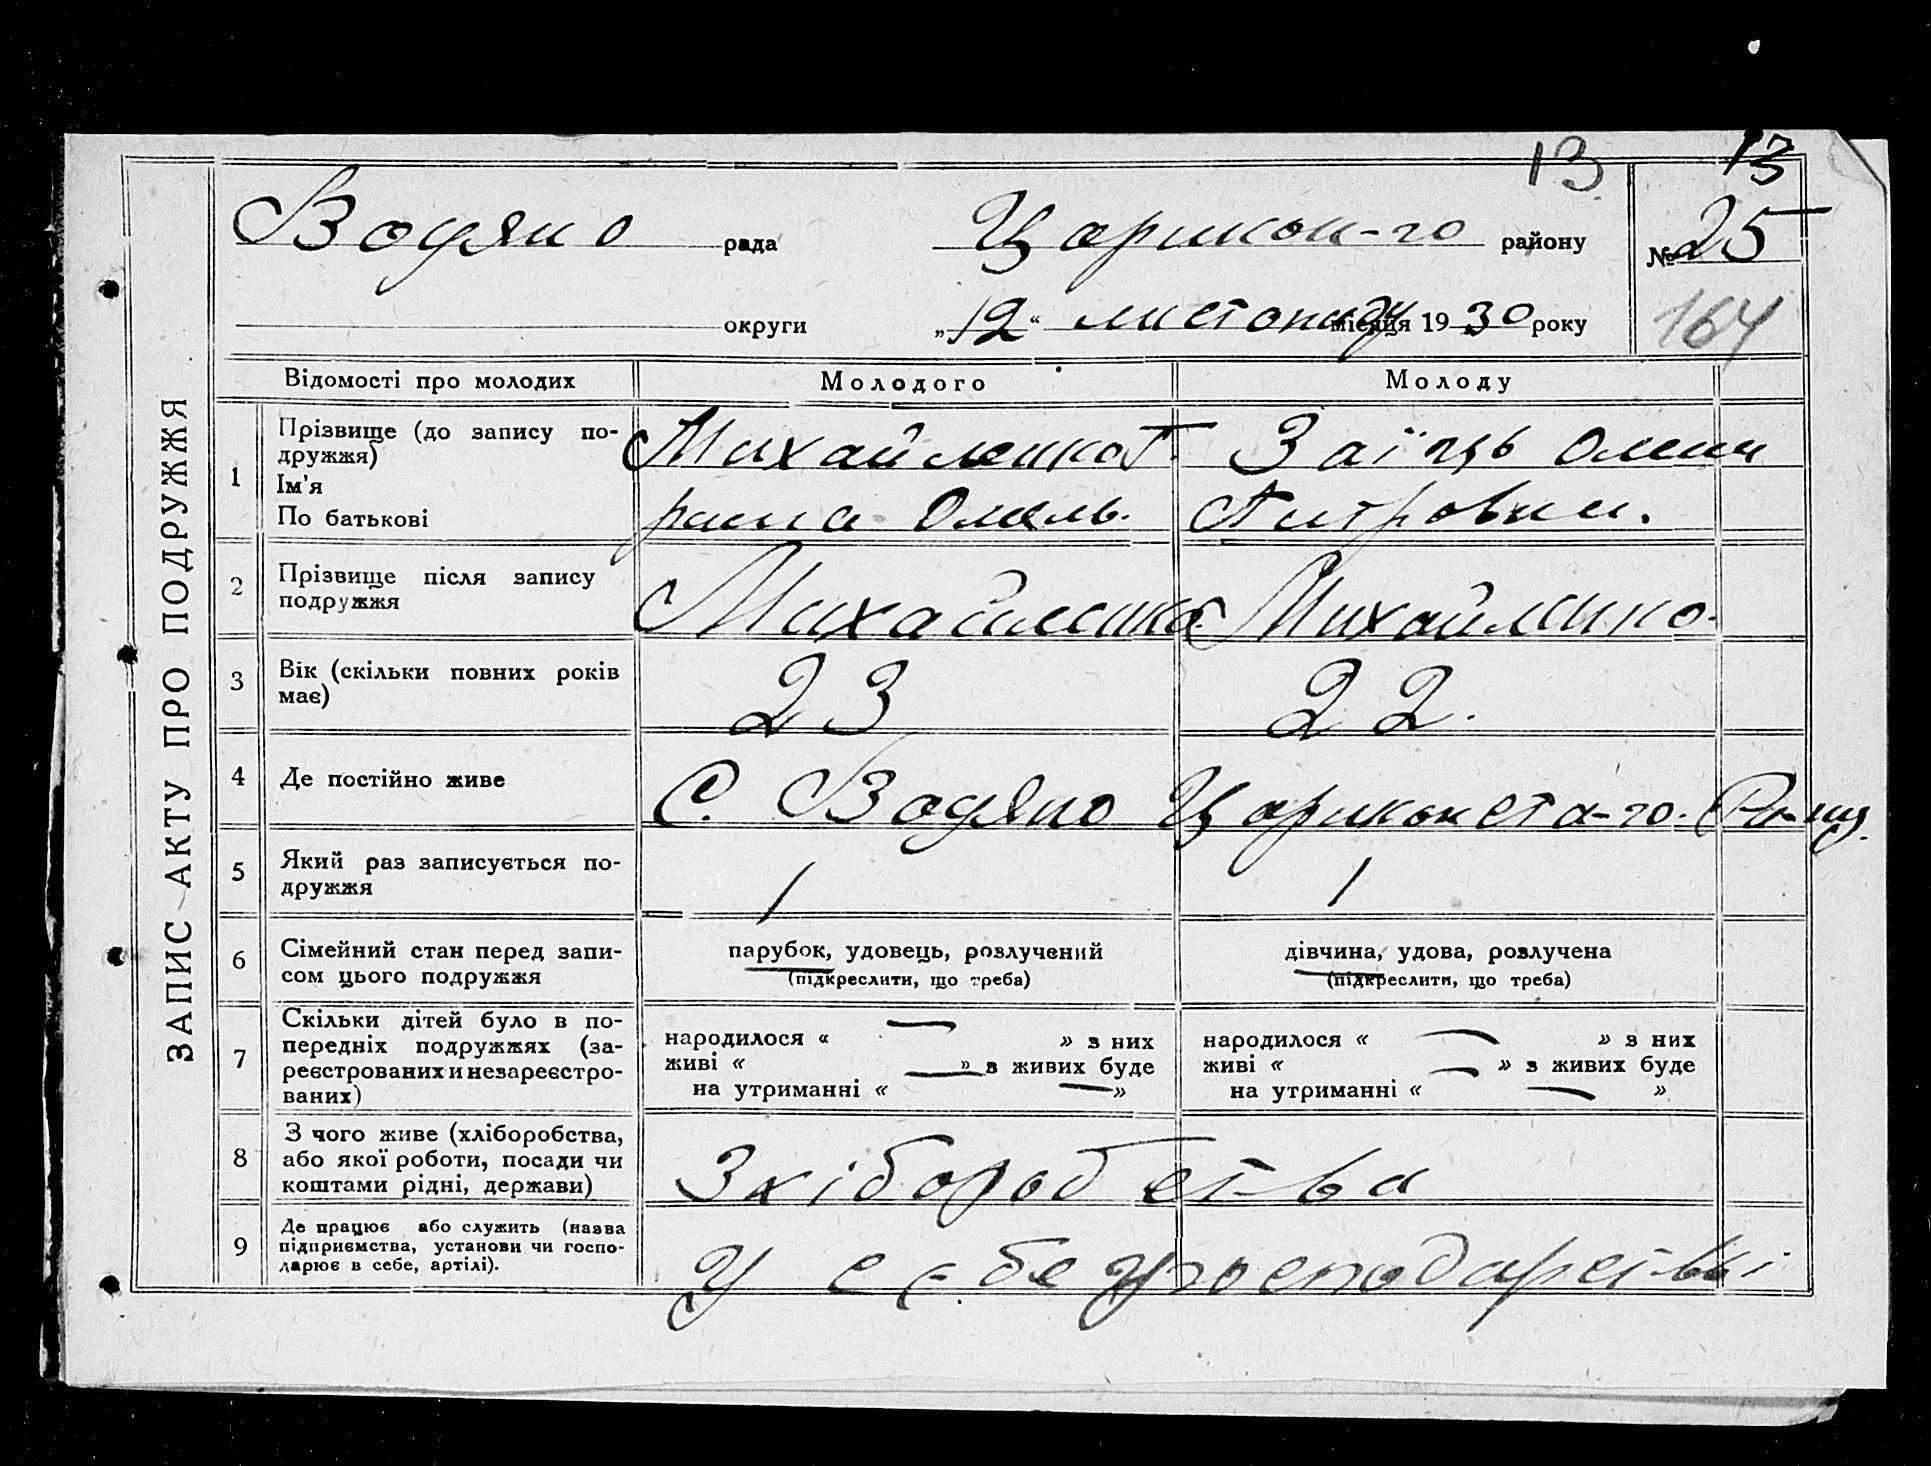 13 13
Водяно рада Царикон-го району № 25
округи „12“ листопаду місяця 1930 року 164
ЗАПИС АКТУ ПРО ПОДРУЖЖЯ
Відомості про молодих Молодого Молоду
1 Прізвище (до запису по-
дружжя)
Ім'я
По батькові
Михайленко Т. Заїць Олени
раша Омель. Питровни.
2 Прізвище після запису
подружжя
Михайленко Михайлинко.
3 Вік (скільки повних років
має)
23 22.
4 Де постійно живе С. Водяно Цариконста-го.
5 Який раз записується по-
дружжя
1 1
6 Сімейний стан перед запи-
сом цього подружжя
парубок, удовець, розлучений
(підкреслити, що треба)
дівчина, удова, розлучена
(підкреслити, що треба)
7 Скільки дітей було в по-
передніх подружжях (за-
реєстрованих и незареєстро-
ваних)
народилося « — » з них
живі « — » з живих буде
на утриманні « — »
народилося « — » з них
живі « — » з живих буде
на утриманні « — »
8 З чого живе (хліборобства,
або якої роботи, посади чи
коштами рідні, держави)
З хіборобства
9 Де працює або служить (назва
підприємства, установи чи госпо-
дарює в себе, артілі).
У себе у господарстві